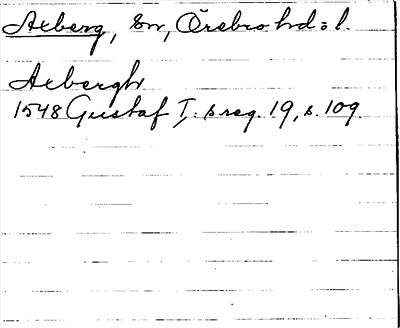 Axberg, sn, Örebro hd o l.
Axbergh
1548 Gustaf I:s reg. 19, s. 109.